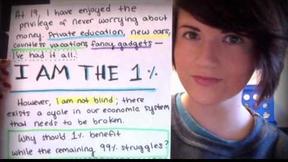 At 19, I have enjoyed the
privilege of never worrying about
money. Private education, new cars,
countless vacations, fancy gadgets—
I've had it all.
I AM THE 1%
However, I am not blind; there
exists a cycle in our economic system
that needs to be broken.
Why should 1% benefit
while the remaining 99% struggles?